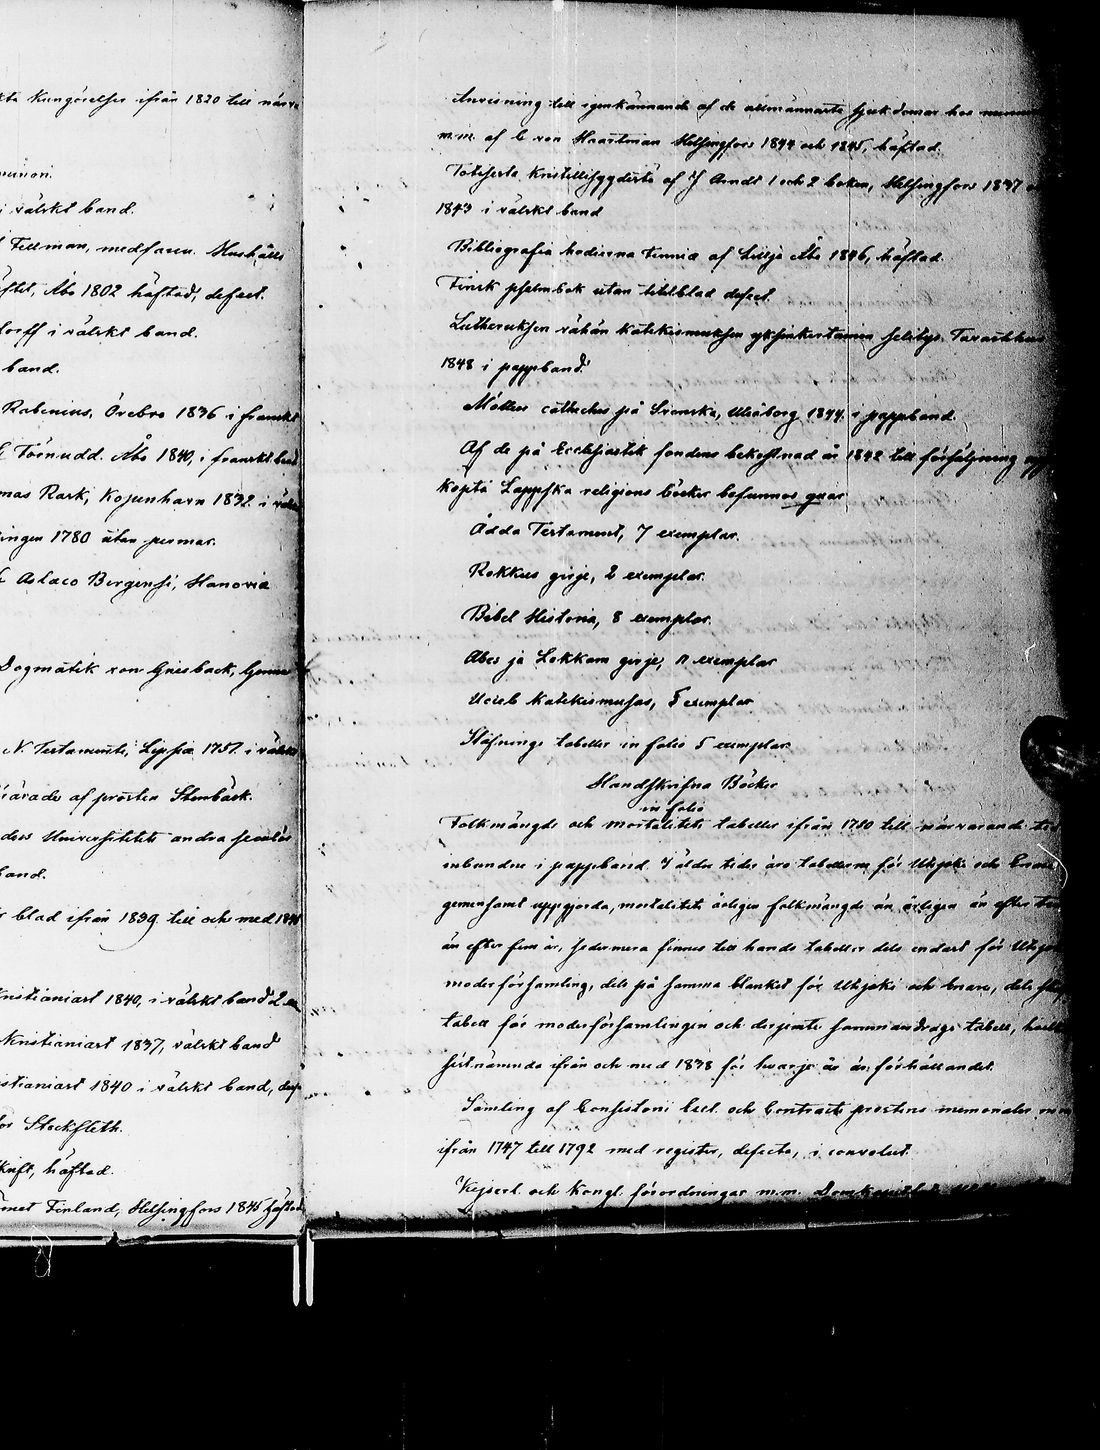 Kungörelser ifrån 1820 till närva
i välskt band.
Fellman, medfaren. Hushålls
Åbo 1802 häftad, defect.
dorff i välskt band.
band.
Rabenius, Örebro 1836 i franskt
Törnudd. Åbo 1840, i franskt band
mas Rask, Köpenhavn 1832. i välskt
ingen 1780 utan permar.
Aslaco Bergensi, Hanovia
Dogmatik von Griesbach,
N. Testamente, Lippia 1757. i välskt
af prosten Stenbäck.
Universitetets andra secular
band.
blad ifrån 1839 till och med
Kristianiast 1840, i välskt band 2
Kristianiast 1837, välskt band
istianiast 1840 i välskt band, def
Stockfleth.
häftad.
Finland, Helsingfors 1845 häftad
Anvisning till igenkännande af de allmännaste sjukdomar hos
m.m. af C von Haartman Helsingfors 1844 och 1845, häftad.
af J Arndt 1 och 2 boken, Helsingfors 1837
1843 i välskt band
Bibliografia hodierna Fennia af Lillja Åbo 1846, häftad.
Finsk psalmbok utan titelblad defect.
Lutheruksen vähän Katekismuksen yksinkertainen selitys.
1848 i pappband.
Möllers catheches på Svenska, Uleåborg 1844. i pappband.
Af de på Ecclesiastik fondens bekostnad år 1842 till försäljning
köpta Lappska religions böcker befunnos qvar
Ådda Testament, 7 exemplar.
Rokkus girje, 2 exemplar.
Bibel Historia, 8 exemplar.
Abes ja Lokkam girje, 11 exemplar
Uceb Katekismusas, 5 exemplar
Stafnings tabeller in folio 5 exemplar.
Handskrifna Böcker
in folio
Folkmängds och mortalitets tabeller ifrån 1780 till närvarande tid
inbundne i pappband. I äldre tider äro tabellerna för Utsjoki och Enare
gemensamt uppgjorda, mortalitets årligen folkmängds än årligen än efter
än efter fem år, sedermera finnes till hands tabeller dels endast för Utsjoki
moderförsamling, dels på samma blankett för Utsjoki och Enare, dels
tabell för moderförsamlingen och desjemte sammandrags tabell,
sistnämnda ifrån och med 1838 för hvarje år är förhållandet.
Samling af Consistorii Eccl. och Contracts prostens memorialer
ifrån 1747 till 1792 med register, defecta, i convolut.
Kejserl. och Kongl. förordningar m.m.